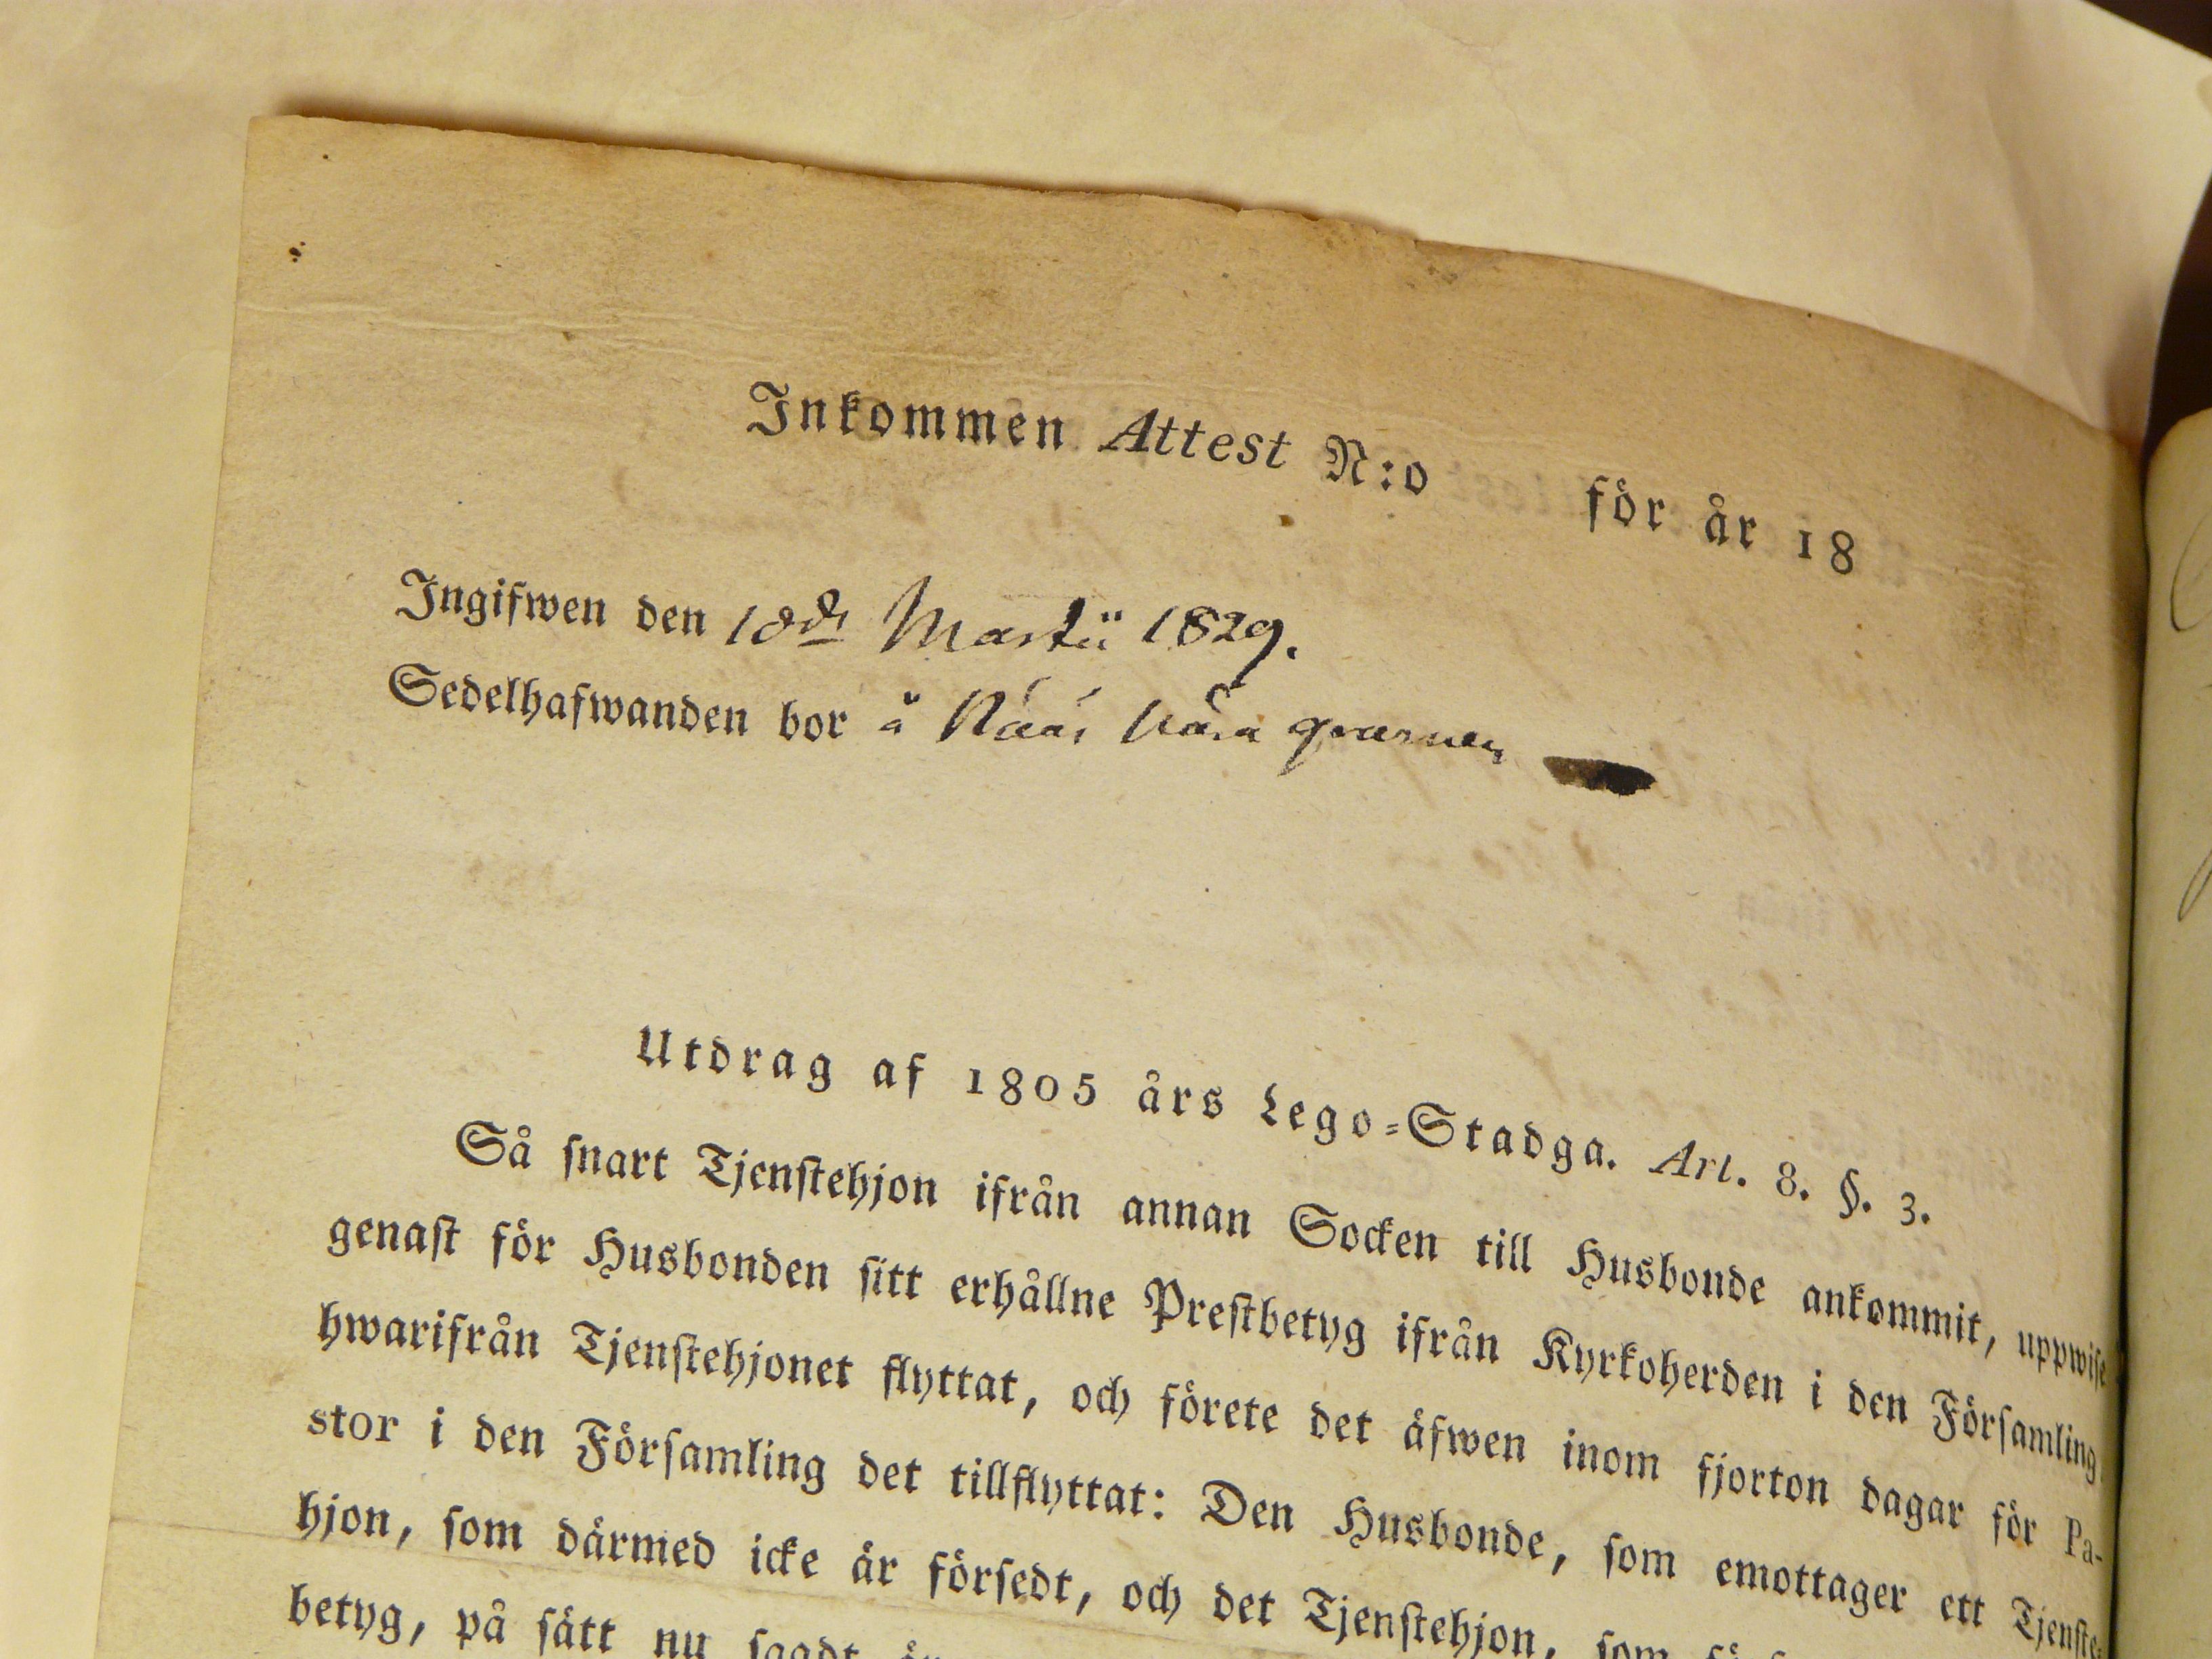 Inkommen Attest N:o för år 18
Ingifwen den 18de Martii 1829.
Sedelhafwanden bor å
Utdrag af 1805 års Lego-Stadga. Art. 8. §. 3.
Så snart Tjenstehjon ifrån annan Socken till Husbonde ankommit, uppwise
genast för Husbonden sitt erhållne Prestbetyg ifrån Kyrkoherden i den Församling
hwarifrån Tjenstehjonet flyttat, och förete det äfwen inom fjorton dagar för Pa-
stor i den Församling det tillflyttat: Den Husbonde, som emottager ett Tjenste-
hjon, som därmed icke är försedt, och det Tjenstehjon, som
betyg, på sätt nu sagdt är